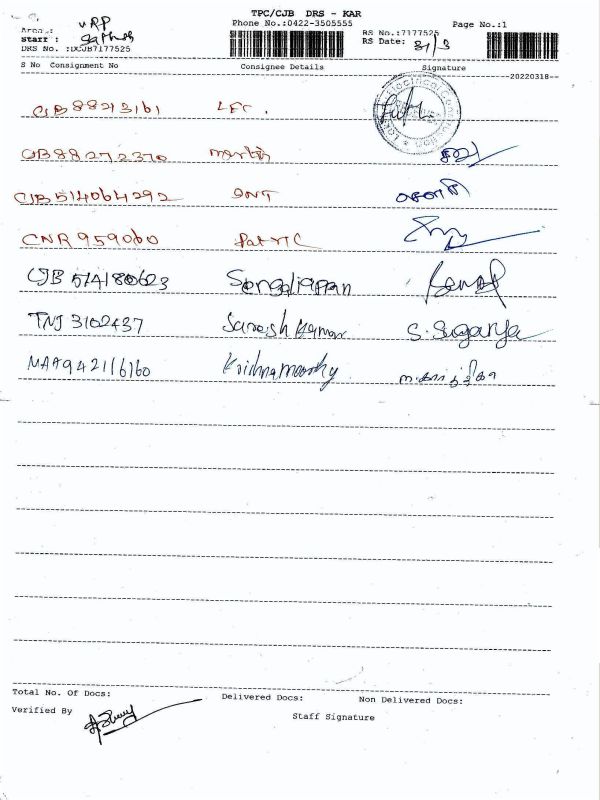 TPC/CJB DRS - KAR
Area.: VRP Phone No.:0422-3505555 Page No.:1
Staff : RS No.:7177525
DRS No. :DCJB7177525 RS Date: 31/3
S No Consignment No Consignee Details Signature
20220318
CJB 88213161 LFC.
CJB 88272370
CJB 514064292 GNT
CNR 959060 Patric
CJB 574180623 Sengaliappan
TNJ 3102437 Saresh Kumar S. Suganya
MAA942116160 Krishnamoorthy
Total No. Of Docs: Delivered Docs: Non Delivered Docs:
Verified By Staff Signature